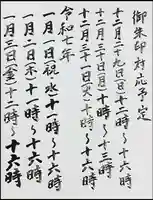 御朱印対応予定
十二月二十九日(日)十時〜十六時
十二月三十日(月)十時〜十三時
十二月三十一日(火)十時〜十六時
令和七年
一月一日(祝水)十一時〜十六時
一月二日(木)十一時〜十六時
一月三日(金)十二時〜十六時